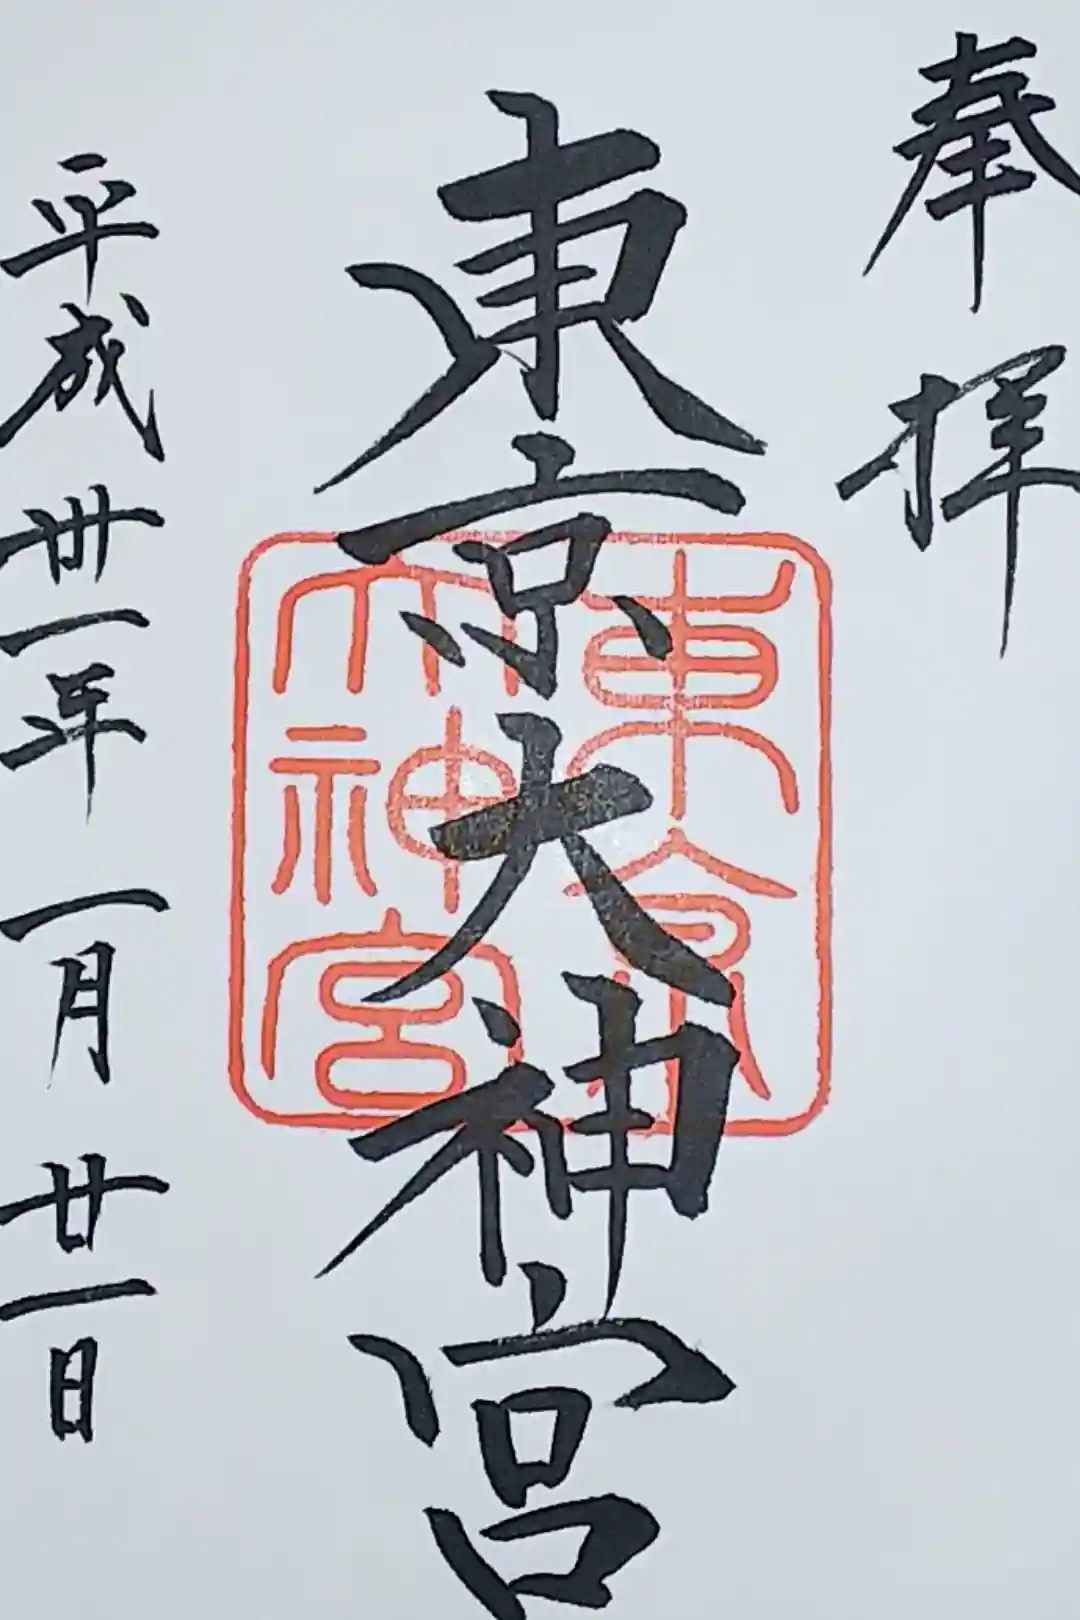 奉拝
東京大神宮
東京
大神宮
平成卅一年一月廿一日